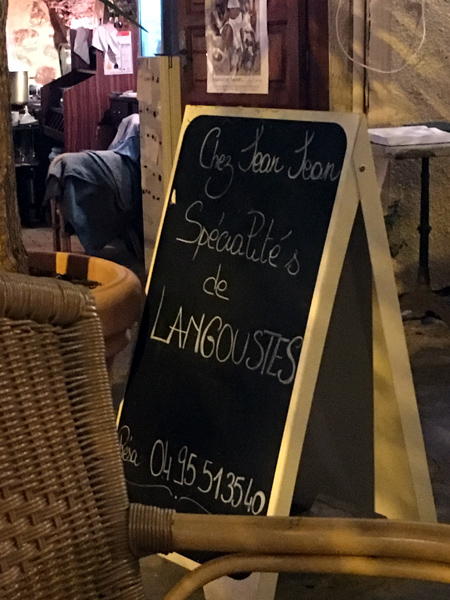 Chez Jean Jean
Spécialités
de
LANGOUSTES
Résa 04 95 513540